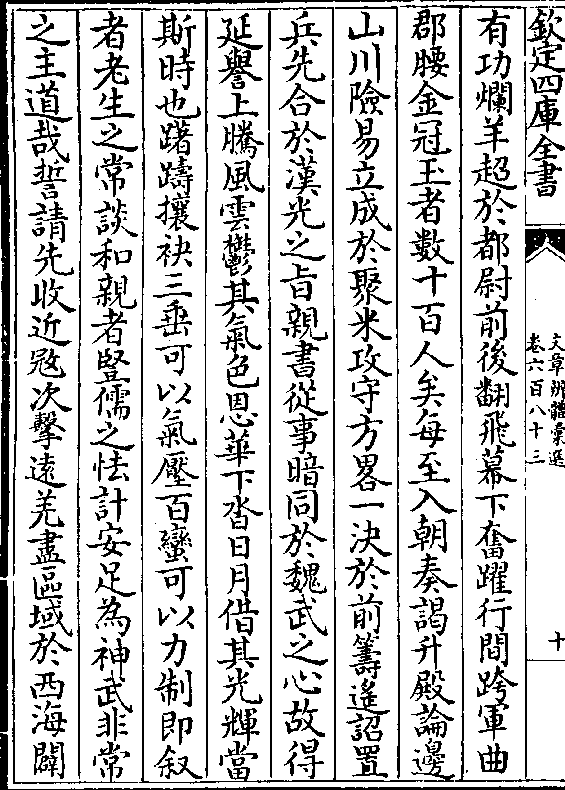 欽定四庫全書
文章辨體彙選
卷六百八十三
十
有功爛羊超於都尉前後翻飛幕下奮躍行間跨軍曲
郡腰金冠玉者數十百人矣每至入朝奏謁升殿論邊
山川險易立成於聚米攻守方畧一決於前籌遙詔置
兵先合於漢光之旨親書從事暗同於魏武之心故得
延譽上騰風雲鬱其氣色恩華下沓日月借其光輝當
斯時也躇躊攘袂三垂可以氣壓百蠻可以力制即叙
者老生之常談和親者豎儒之怯計安足為神武非常
之主道哉誓請先收近寇次擊遠羌盡區域於西海闢